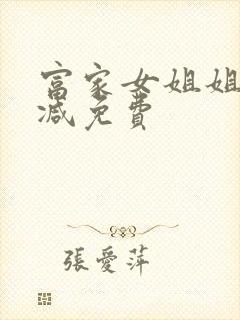 富家女姐姐
减免費
張愛萍